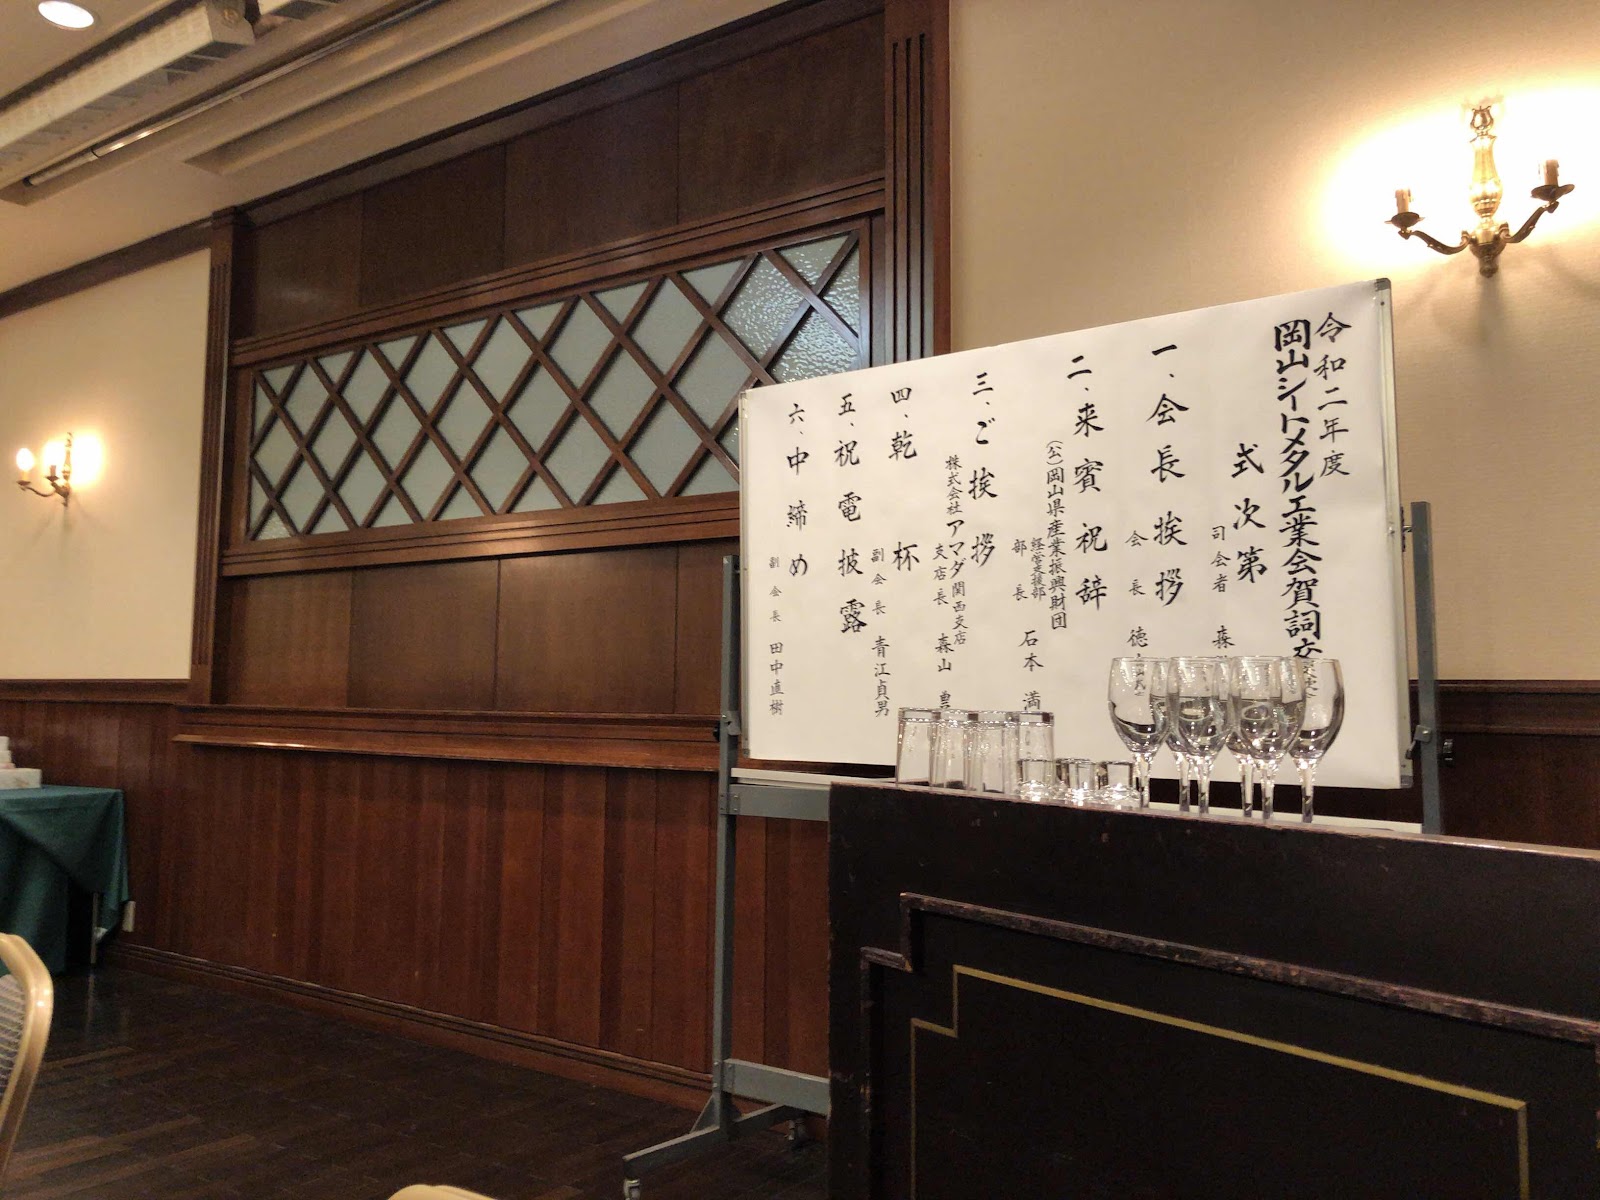 令和二年度
岡山シートメタル工業会賀詞交
式次第
司会者 森
一、会長挨拶
会長 徳
二、来賓祝辞
(公)岡山県産業振興財団
経営支援部
部長 石本 満
三、ご挨拶
株式会社アマダ関西支店
支店長 森山
四、乾杯
副会長 青江貞男
五、祝電披露
六、中締め
副会長 田中直樹